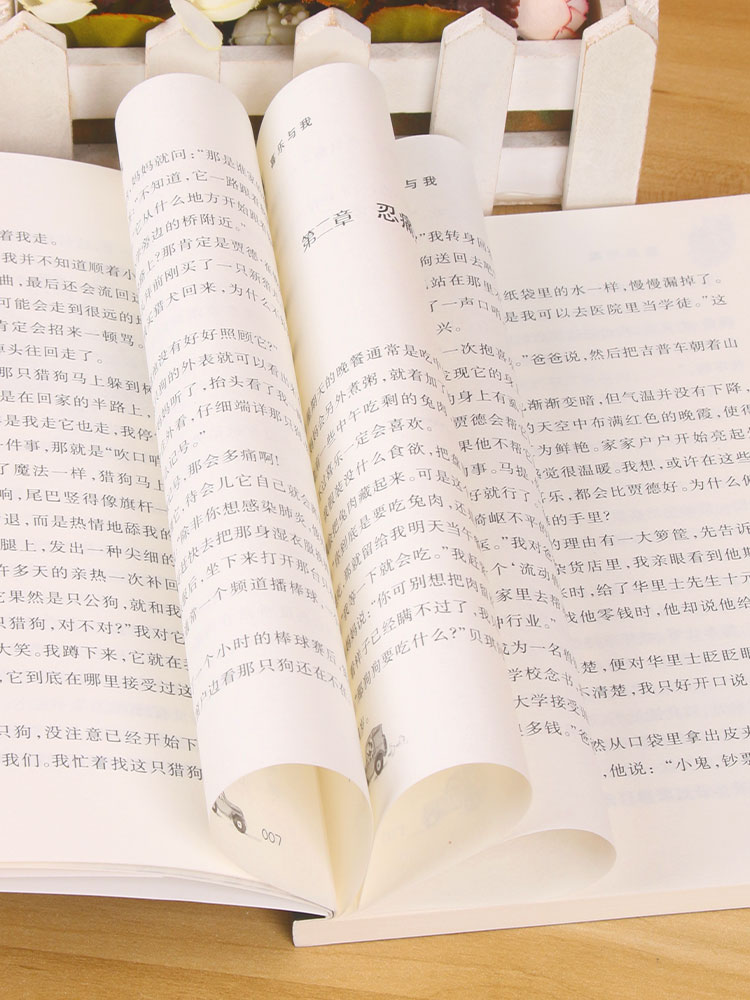 着我走。
我并不知道顺着小
曲，最后还会流回
可能会走到很远的
肯定会招来一顿骂。
头往回走了。
那只猎狗马上躲到
是在回家的半路上，
是我走它也走，我停
一件事，那就是“吹口
了魔法一样，猎狗马
响，尾巴竖得像旗杆一
退，而是热情地舔我的
腿上，发出一种尖细的
许多天的亲热一次补回
它果然是只公狗，就和我
只猎狗，对不对？”我对它
大笑。我蹲下来，它就在
，它到底在哪里接受过这
只狗，没注意已经开始下
我们。我忙着找这只猎狗
妈妈就问：“那是谁
不知道，它一路跟
它从什么地方开始跟
旁边的桥附近。”
？那肯定是贾德
前刚买了一只新猎
猎犬回来，为什么不
没有好好照顾它？”
狗的外表就可以看
听了，抬头看了我
外看，仔细端详那只
记号。”
号，那会多痛啊！
，待会儿它自己就会
除非你想感染肺炎，
快去把那身湿衣服
后，坐下来打开那台
一个频道播棒球，
个小时的棒球赛后，
边看那只狗还在不在
007
喜乐与我
第二章 忍痛
天的晚餐通常是吃
会另外煮粥，就着加了
一些中午吃剩的兔肉
喜乐一定会喜欢。
假装没什么食欲，把
兔肉藏起来。可是
到底是要吃兔肉，还
那就留给我明天当午
等一下就会吃。”我
妈说：“你可别想把肉
样子已经瞒不过了，我
狗狗要吃什么？”贝
与我
“我转身
狗送回去
站在那里
了一声口哨
兴。
一次抱喜
发现它的身
为身上有
贾德会帮
果他不帮
事。马提
好就行了
崎岖不平的
运。”我对爸
个‘流动
家里去帮
种行业。”
成为一名
学校念书
大学接受
多钱。”爸
纸袋里的水一样，慢慢漏掉了。
是我可以去医院里当学徒。”这
”爸爸说，然后把吉普车朝着山
渐渐变暗，但气温并没有下降，
的天空中布满红色的晚霞，使
为鲜艳。家家户户开始亮起
感觉很温暖。我想，或许在这些
喜乐，都会比贾德好。为什么
的手里？
的理由有一大箩筐，先告诉
杂货店里，我亲眼看到他
时，给了华里士先生十
找他零钱时，他却说他给
楚，便对华里士眨眨眼
不清楚，我只好开口说
然从口袋里拿出皮夹
，他说：“小鬼，钞票